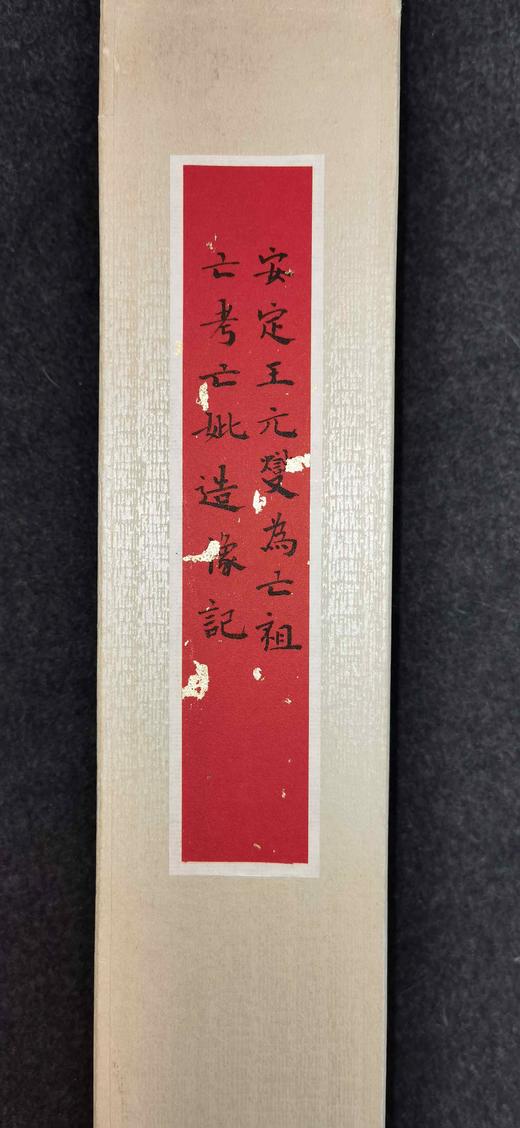 安定王元燮為亡祖
亡考亡妣造像記